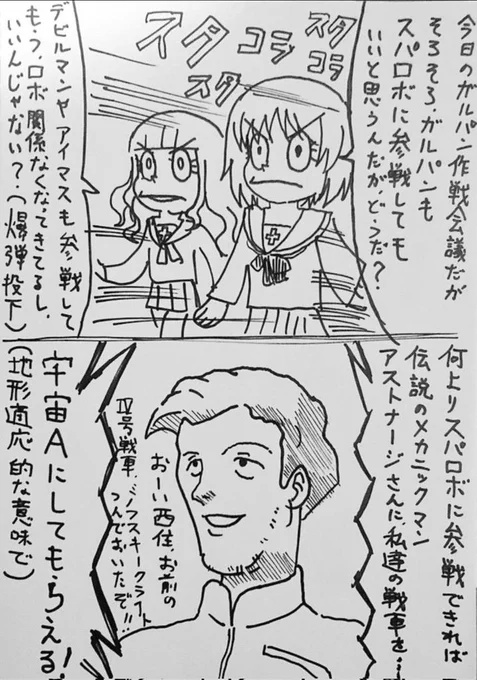 今日のガルパン作戦会議だが
そろそろ、ガルパンも
スパロボに参戦しても
いいと思うんだがどうだ?
スタ
コラ
スタ
コラ
スタ
デビルマンやアイマスも参戦して
もう、ロボ関係なくなってきてるし、
いいんじゃない?(爆弾投下)
何よりスパロボに参戦できれば
伝説のメカニックマン
アストナージさんに、私達の戦車を…
おーい西住、お前の
Ⅳ号戦車、ミノフスキークラフト
つんでおいたぞ!!
宇宙Aにしてもらえる!
(地形適応的な意味で)